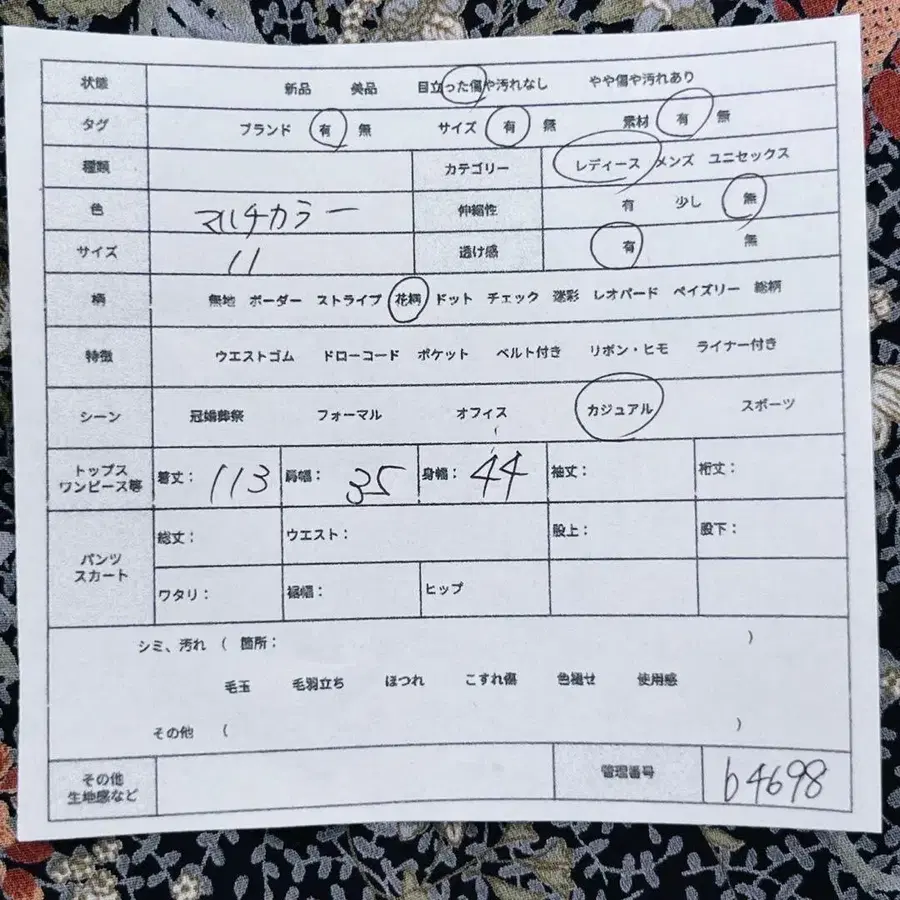 状態 新品 美品 目立った傷や汚れなし やや傷や汚れあり
タグ ブランド 有 無 サイズ 有 無 素材 有 無
種類 カテゴリー レディース メンズ ユニセックス
色 マルチカラー 伸縮性 有 少し 無
サイズ 11 透け感 有 無
柄 無地 ボーダー ストライプ 花柄 ドット チェック 迷彩 レオパード ペイズリー 総柄
特徴 ウエストゴム ドローコード ポケット ベルト付き リボン・ヒモ ライナー付き
シーン 冠婚葬祭 フォーマル オフィス カジュアル スポーツ
トップス
ワンピース等 着丈: 113 肩幅: 35 身幅: 44 袖丈: 裄丈:
パンツ
スカート
総丈: ウエスト: 股上: 股下:
ワタリ: 裾幅: ヒップ
シミ、汚れ ( 箇所: )
毛玉 毛羽立ち ほつれ こすれ傷 色褪せ 使用感
その他 ( )
その他
生地感など
管理番号 b4698